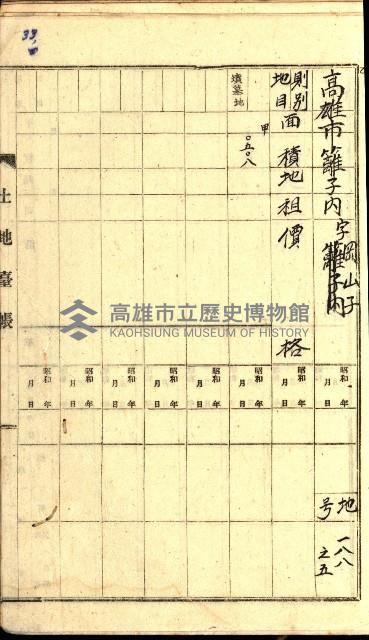 33
高雄市籬子內字籬子內
岡山子
地号 一八八之五
則別
地目 面積 地租 價格
墳墓地
甲
〇五〇八
昭和 年 月 日
昭和 年 月 日
昭和 年 月 日
昭和 年 月 日
昭和 年 月 日
昭和 年 月 日
昭和 年 月 日
昭和 年 月 日
土地臺帳
高雄市立歷史博物館
KAOHSIUNG MUSEUM OF HISTORY